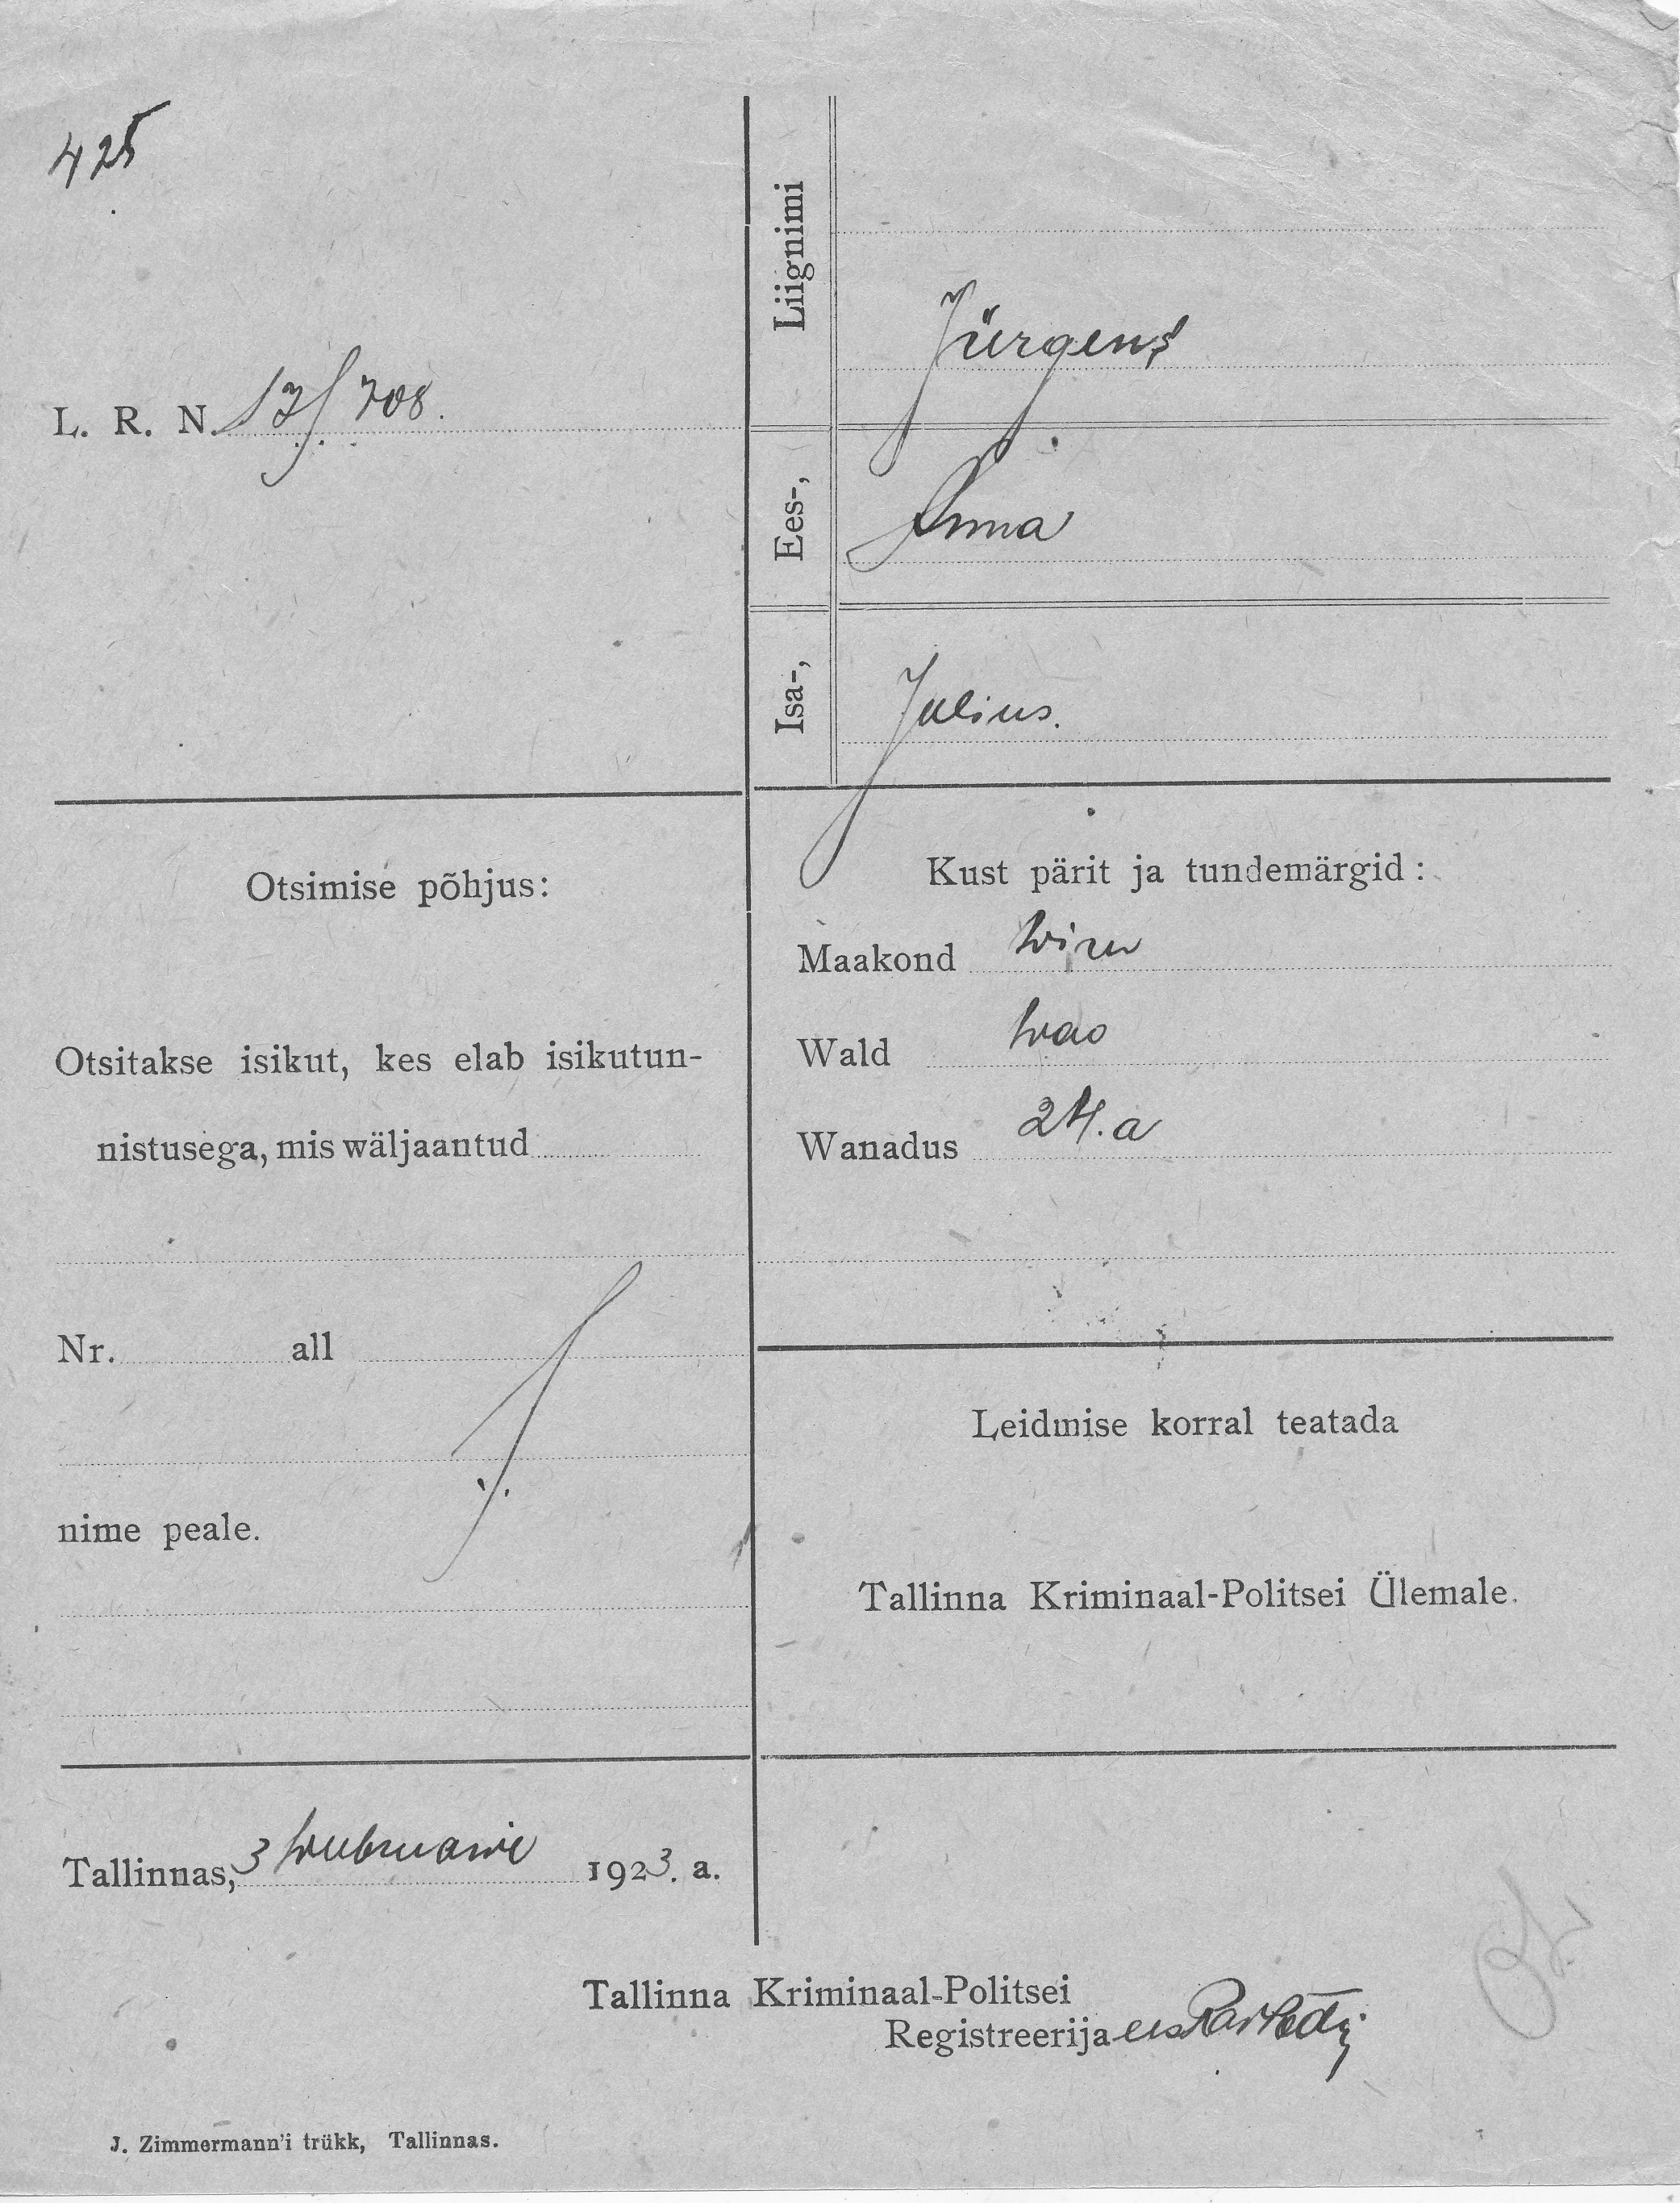 425
L. R. N. 13/708.
Liignimi Jürgens
Ees-, Anna
Isa-, Julius.
Otsimise põhjus:
Otsitakse isikut, kes elab isikutun-
nistusega, mis wäljaantud
Nr. all
nime peale.
Kust pärit ja tundemärgid:
Maakond Wiru
Wald Wao
Wanadus 24. a
Leidmise korral teatada
Tallinna Kriminaal-Politsei Ülemale.
Tallinnas, 3 Weebruaril 1923. a.
Tallinna Kriminaal-Politsei
Registreerija
J. Zimmermann'i trükk, Tallinnas.